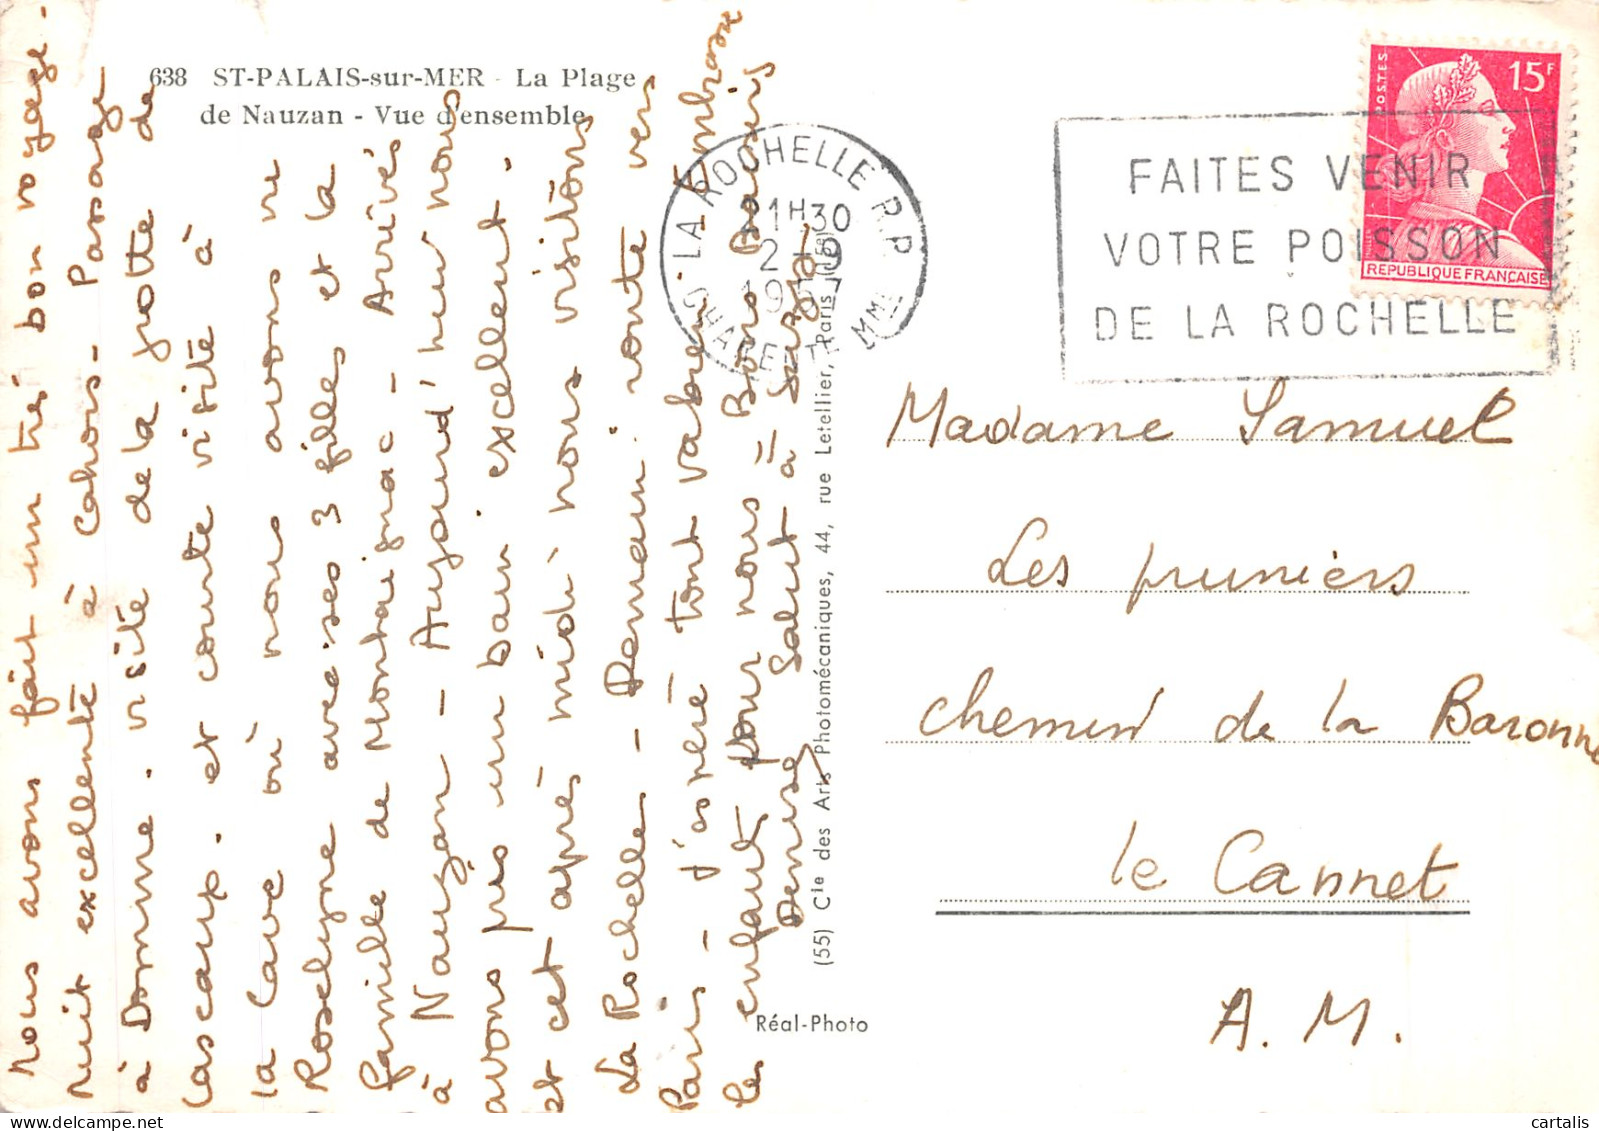 638 ST-PALAIS-sur-MER - La Plage
de Nauzan - Vue d'ensemble
Nous avons fait un très bon voyage -
Nuit excellente à Cahors - Passage
à Domme. visite de la grotte de
Lascaux. et courte visite à
la Cave où nous avons vu
Roselyne avec ses 3 filles et la
famille de Montaignac - Arrivés
à Nauzan - Aujourd'hui nous
avons pris un bain excellent.
et cet après midi nous visitons
La Rochelle - Demain route vers
Paris - J'espère tout va bien Embrasse
les enfants pour nous = Bons Baisers
Denise Salut à
LA ROCHELLE R.P.
21H30
2 - 9
19
CHARENTE MME
FAITES VENIR
VOTRE POISSON
DE LA ROCHELLE
POSTES
15F
REPUBLIQUE FRANÇAISE
(55) Cie des Arts Photomécaniques, 44, rue Letellier, Paris (15e)
Réal-Photo
Madame Samuel
Les pruniers
chemin de la Baronne
le Cannet
A. M.
cartalis